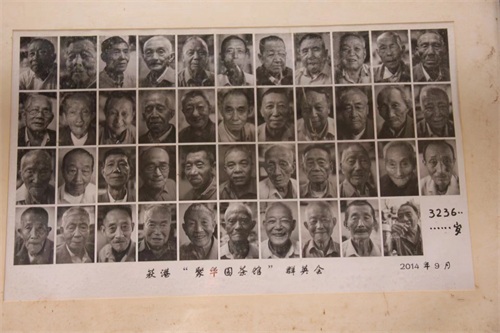 3236··
······岁
荻港“聚华园茶馆”群英会
2014年9月